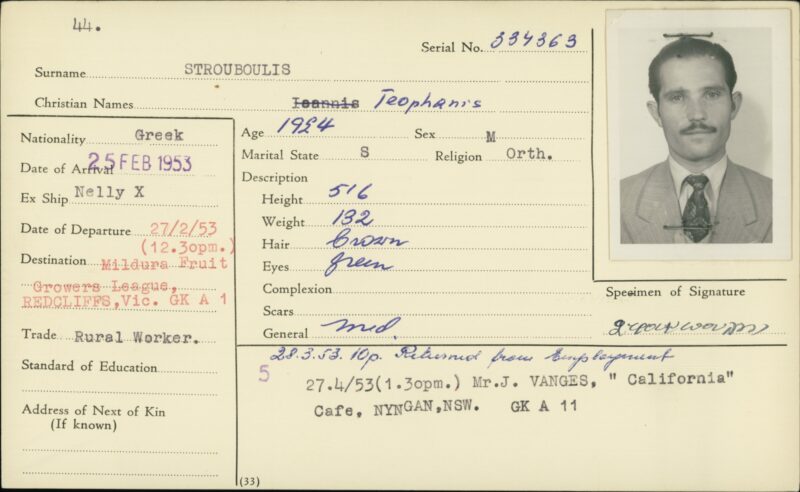 44.
Serial No. 334363
Surname STROUBOULIS
Christian Names Ioannis Teophanis
Nationality Greek
Date of Arrival 25 FEB 1953
Ex Ship Nelly X
Date of Departure 27/2/53
(12.3opm.)
Destination Mildura Fruit
Growers League,
REDCLIFFS,Vic. GK A 1
Trade Rural Worker.
Standard of Education
Address of Next of Kin
(If known)
Age 1924 Sex M
Marital State S Religion Orth.
Description
Height 516
Weight 132
Hair brown
Eyes green
Complexion
Scars
General med.
Specimen of Signature
28.3.53. 10p. Returned from Employment
5
27.4/53(1.3opm.) Mr.J. VANGES, " California"
Cafe, NYNGAN,NSW. GK A 11
(33)